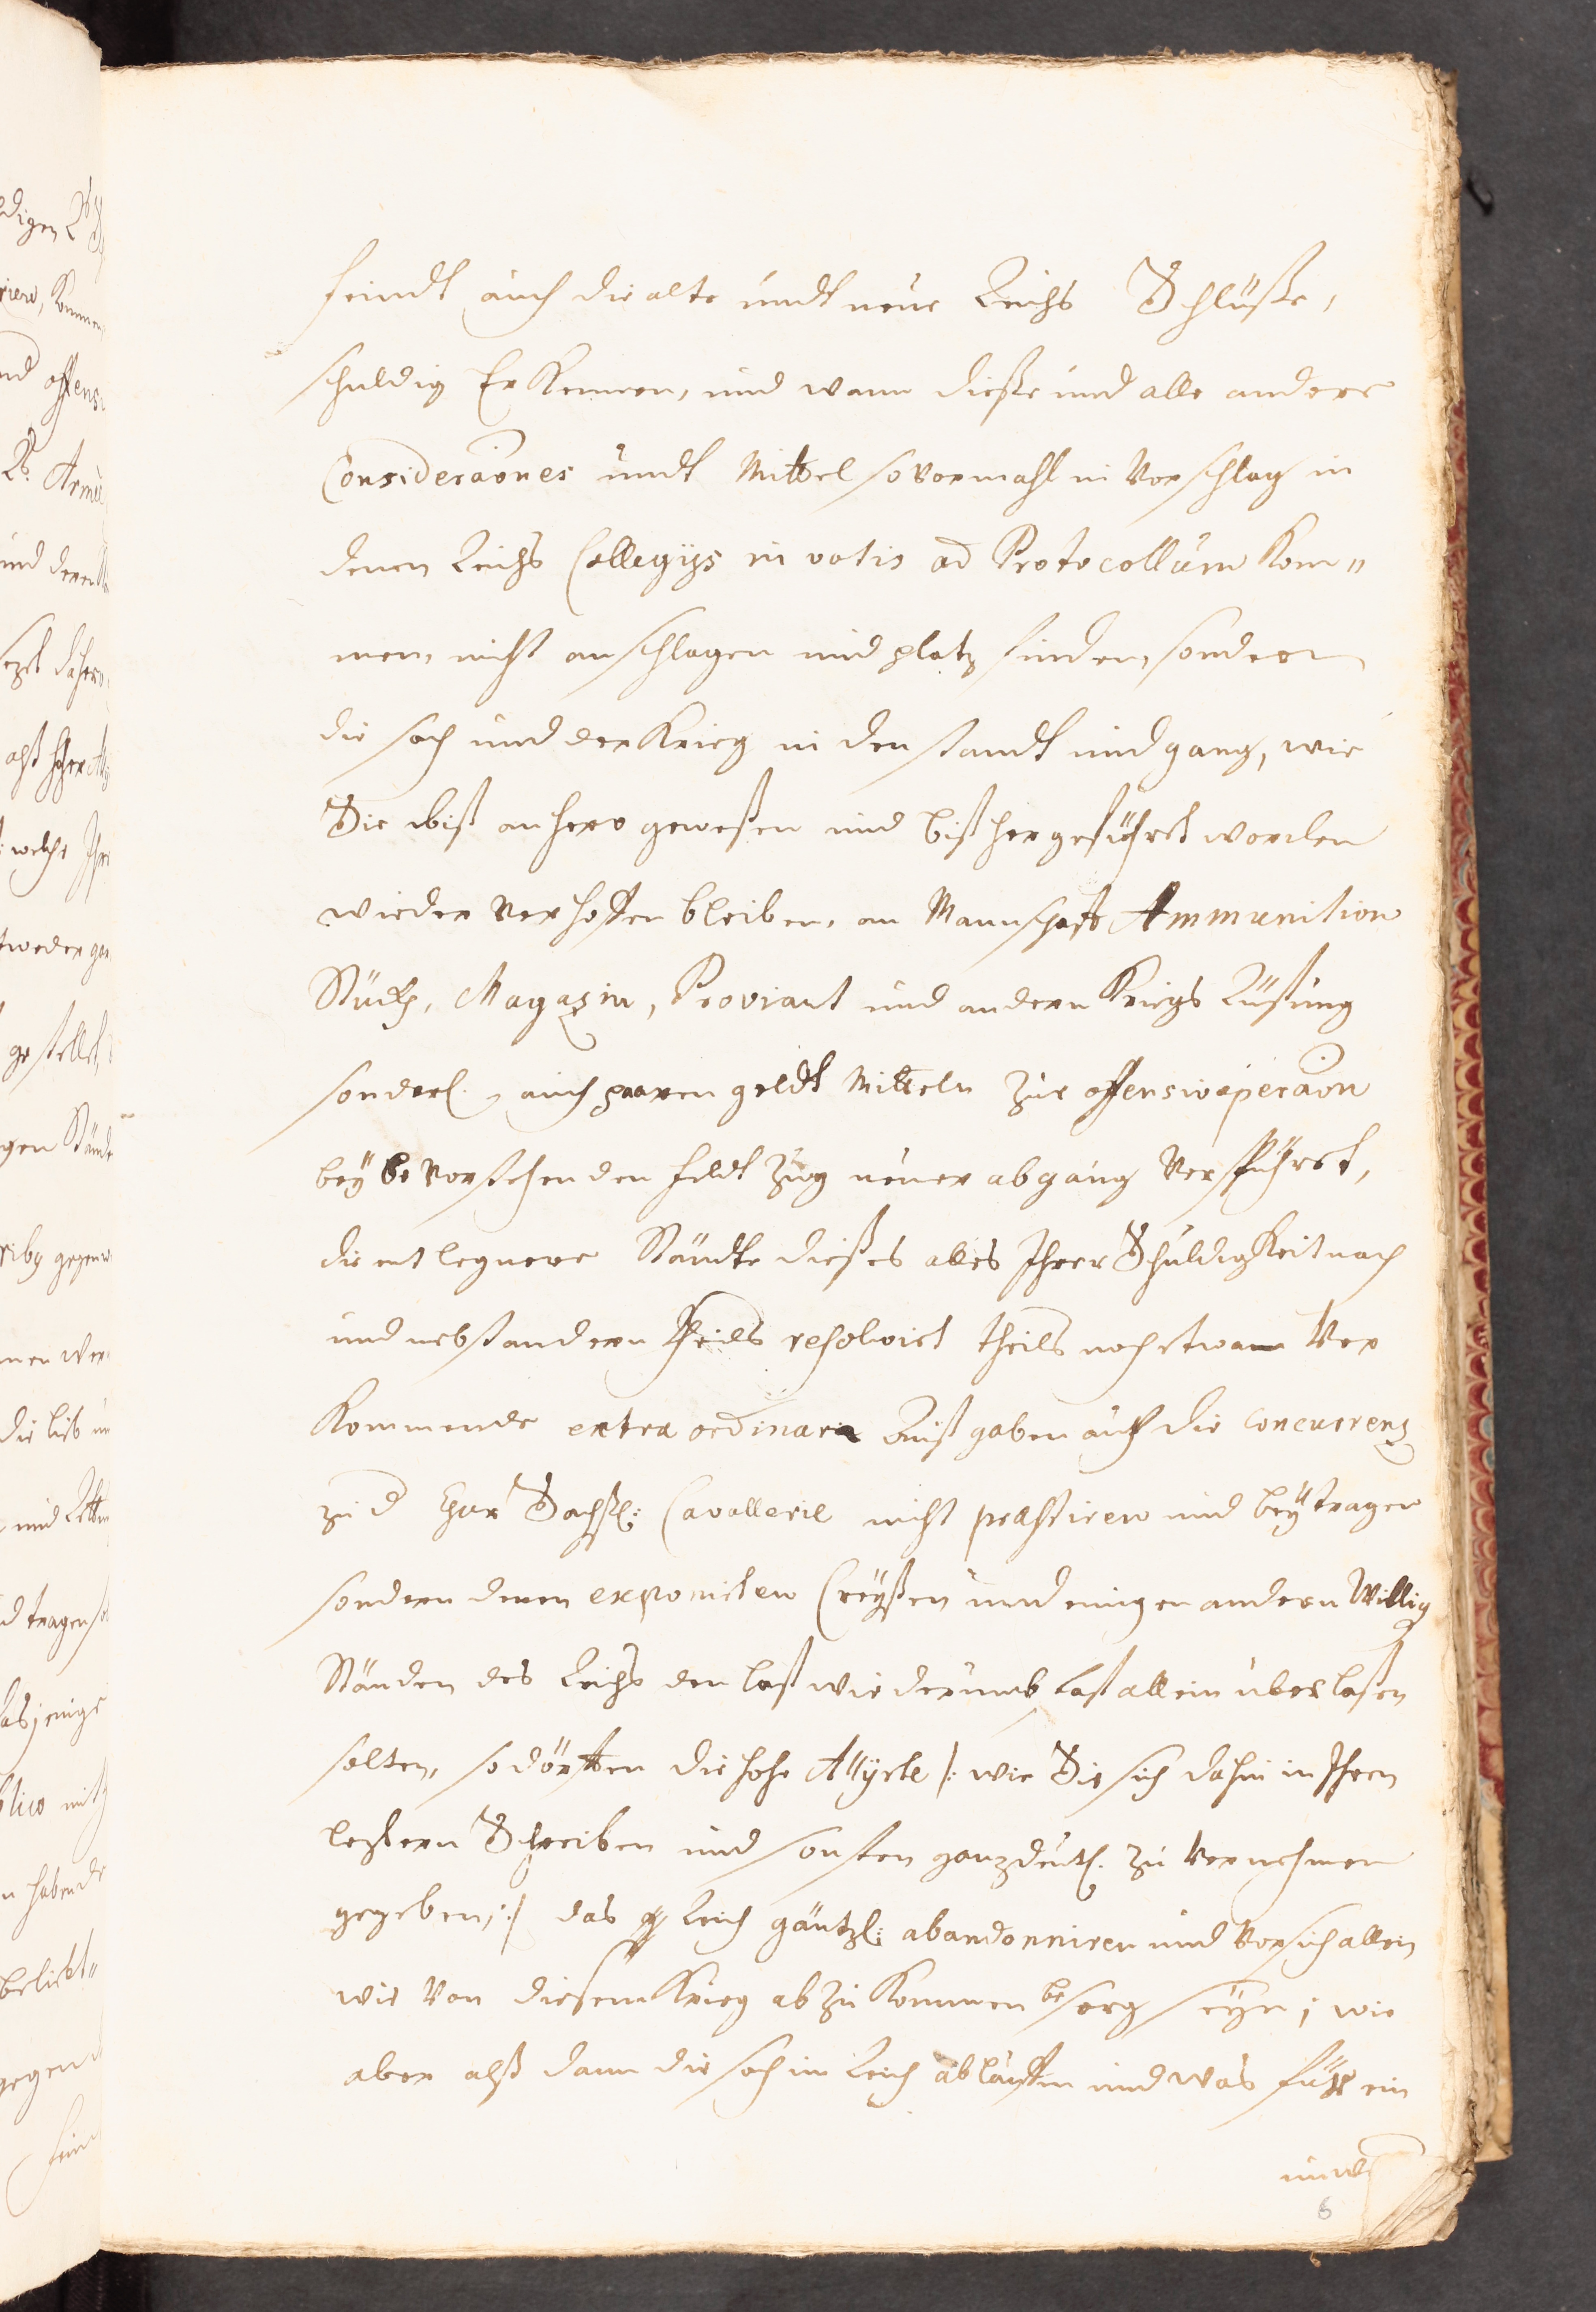 feindt auch die alte undt neue Reichs Schlüße,
schuldig Erkennen, und wann dieße und alle andere
Consideraōnes undt Mittel so vormahl in Vorschlag in
denen Reichs Collegijs in votis ad Protocollum kom„
men, nicht anschlagen und platz finden, sondern
die sach und der Krieg in den standt und gang, wie
Sie biß anhero geweßen und bißher geführt worden
wieder verhoffen bleiben, an Mannschafft Ammunition
Stuckh, Magazin, Proviant und andern Kriegs Rüstung
sonderl. auch paaren geldt Mitteln zur offensivoperaōn
beÿ bevorstehenden feldt Zug neuer abgang verspührt,
die entlegnere Stände dießes alles Ihrer Schuldigkeit nach
und nebst andern theils resolvirt theils noch etwan Vor
Kommende extraordinari Außgaben auch die Concurrenz
zu d Chur Sachßl: Cavallerie nicht præstiren und beÿtragen
sondern denen exponirten Creÿßen und einigen andern Willig
Ständen des Reichs den last wiederumb fast allein überlaßen
solten, so dörfften die hohe Allÿrte /: wie Sie sich dahin in Ihren
leztern Schreiben und sonsten ganz deutl. zu vernehmen
gegeben :/ das Reich gäntzl: abandonniren und vor sich allein
wie von diesem Krieg abzukommen besorg seÿn; wie
aber alß dann die sach im Reich ablauffen und was für ein